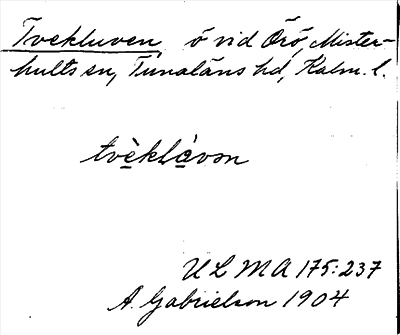 Tvekluven, ö vid Örö, Mister-
hults sn, Tunaläns hd, Kalm. l.
tvèklàvən
ULMA 175:237
A. Gabrielson 1904